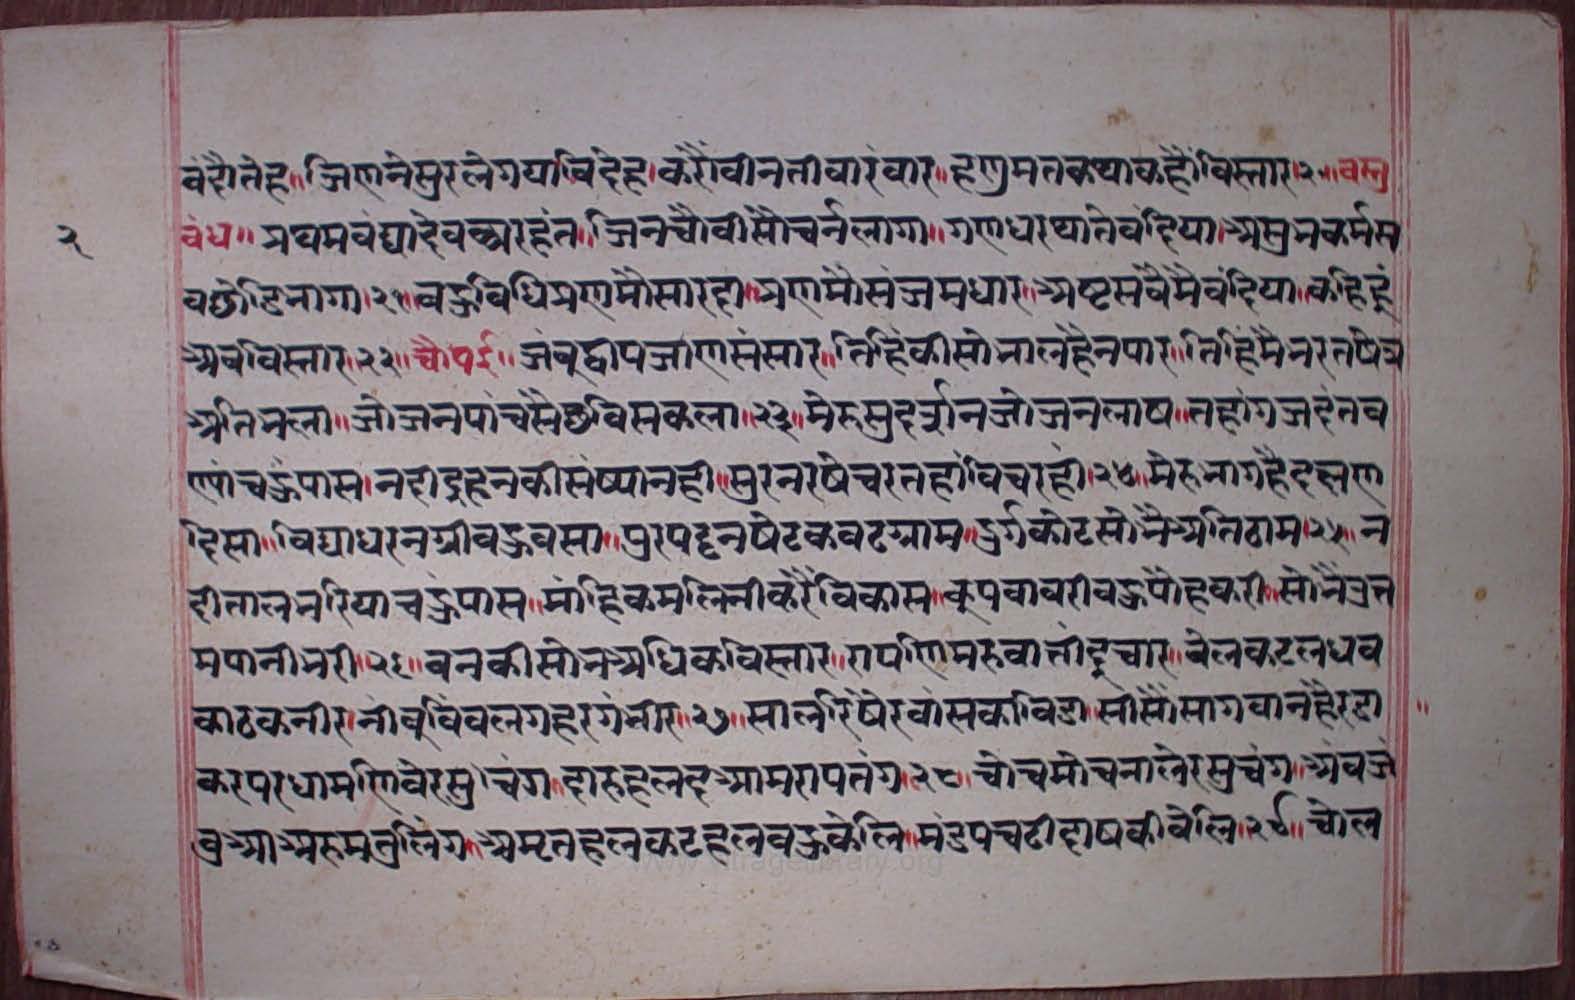 वंदौतेह॥जिणनेसुरलेगयाविदेह।करौंवीनतीवारंवार॥हणुमतकथाकहौंविस्तार।२०॥वस्तु
२
वंध॥प्रथमवंद्यादेवअरहंत॥जिनचौवीसौचर्नलागा॥गणधरथातेवंदिया॥असुभकर्मस
वछोडिभागा।२१॥वहुविधिप्रणमौसारदा॥प्रणमौसंजमधार॥अष्टसवैमैवंदिया॥कहिहूं
अवविस्तार।२२॥चौपई॥जंबुद्वीपजाणसंसार॥तिहिंकीसोभालहैनपार॥तिहिंमैभरतषेत्र
अतिभला॥जोजनपांचसैछविसकला॥२३॥मेरुसुदर्शनजोजनलाष॥तहांगजदंतव
ण्यांचहुंपास।नदीद्रहनकीसंष्यानही॥सुरनरषेचरतहांविचरहीं।२४॥मेरुभागहैदक्षण
दिसा॥विद्याधरनग्रीवहुवसा॥पुरपट्टनषेटकवटग्राम॥दुर्गकोटसोभैअतिठाम।२५॥न
दीतालभरियाचहुंपास॥मांहिकमलिनीकरैंविकास॥कूपवावरीवहुपौहकरी॥सोभैउत्त
मपानीभरी।२६॥वनकीसोभअधिकविस्तार॥रापणिमरुवात्तींदूचार॥बेलकटलधव
काठकनीर।नींबुविंवलगहरगंभीर॥२७॥सालरिषेरवांसकाविडा॥सीसौंसागवानहैरडा
करपरधामणिवेरसुचंग॥दारुहलदआमरापतंग।२८॥चोचमोचनालेरसुचंग॥अंवजं
वुआअरुमतुलिंग॥अमृतहलकटहलवहुकेलि॥मंडपचढीदाषकीवेलि।२९॥चोल